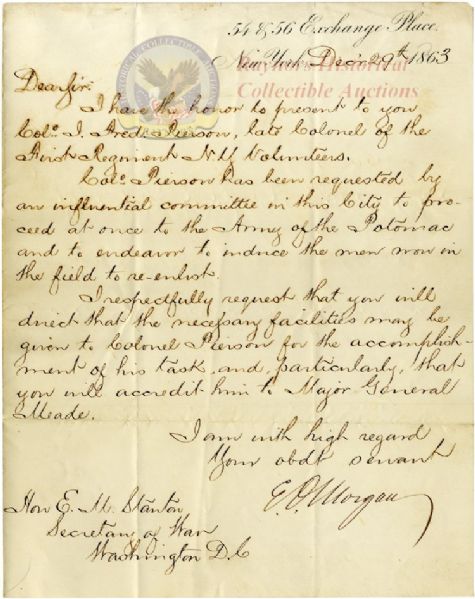 54 & 56 Exchange Place.
New York Decr 29th 1863
Historical
Collectible Auctions
Dear Sir.
I have the honor to present to you
Colo. J. Fred. Pierson, late Colonel of the
First Regiment N.Y. Volunteers.
Colo. Pierson has been requested by
an influential committee in this City to pro-
ceed at once to the Army of the Potomac
and to endeavor to induce the men now in
the field to re-enlist.
I respectfully request that you will
direct that the necessary facilities may be
given to Colonel Pierson for the accomplish-
ment of his task, and, particularly, that
you will accredit him to Major General
Meade.
I am with high regard
Your obdt servant
E. D. Morgan
Hon E. M. Stanton
Secretary of War
Washington D.C